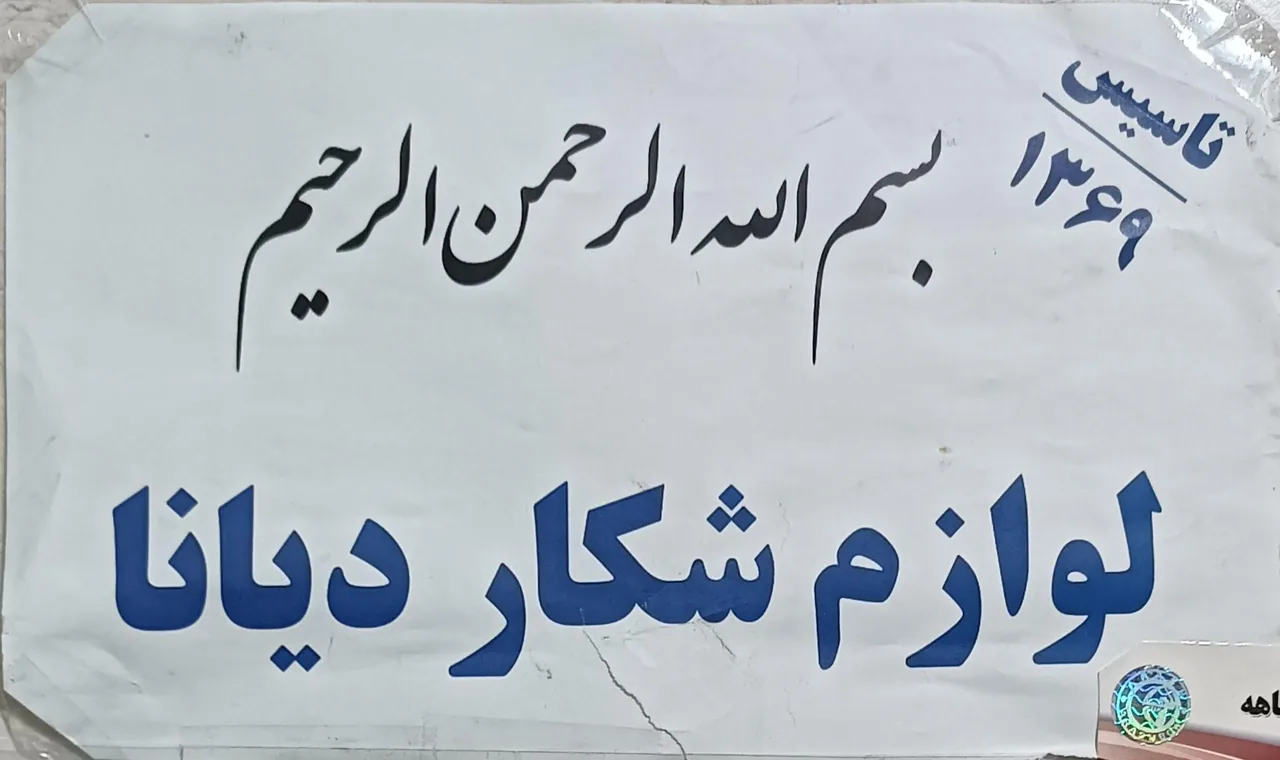 تاسیس
۱۳۶۹
بسم الله الرحمن الرحیم
لوازم شکار دیانا